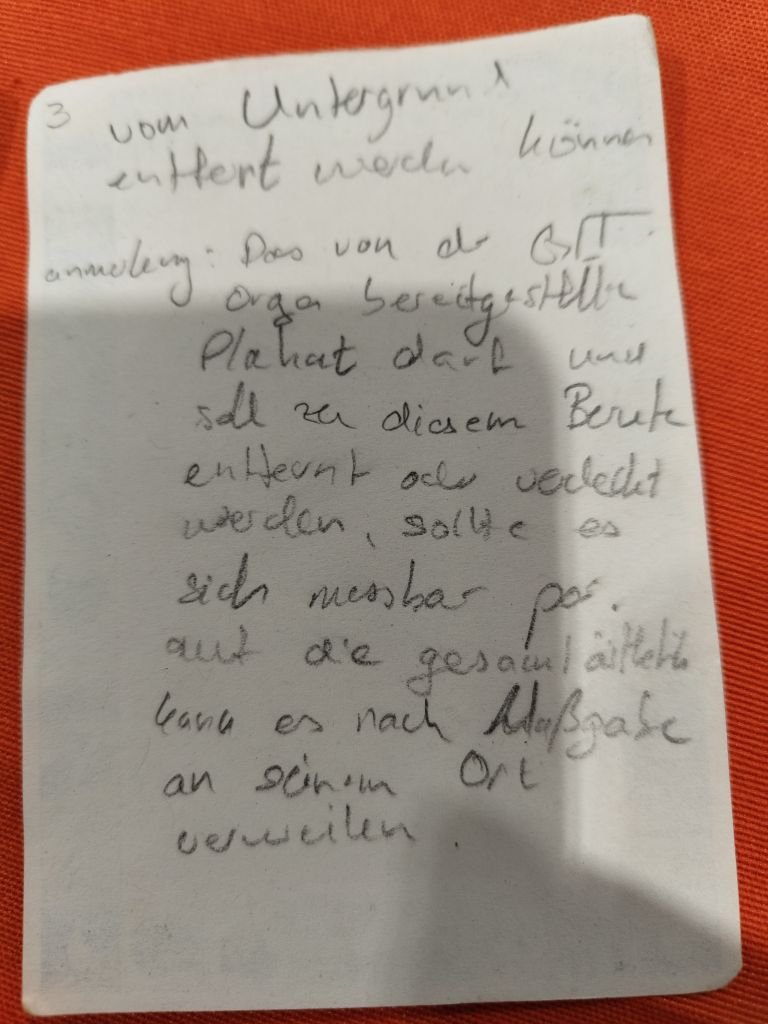 3 vom Untergrund
entfert werden können
anmerkung: Das von der
Orga bereitgestellte
Plakat darf und
soll zu diesem
entfernt oder verdeckt
werden, sollte es
sich messbar pos.
auf die gesamt
kann es nach Maßgabe
an seinem Ort
verweilen.